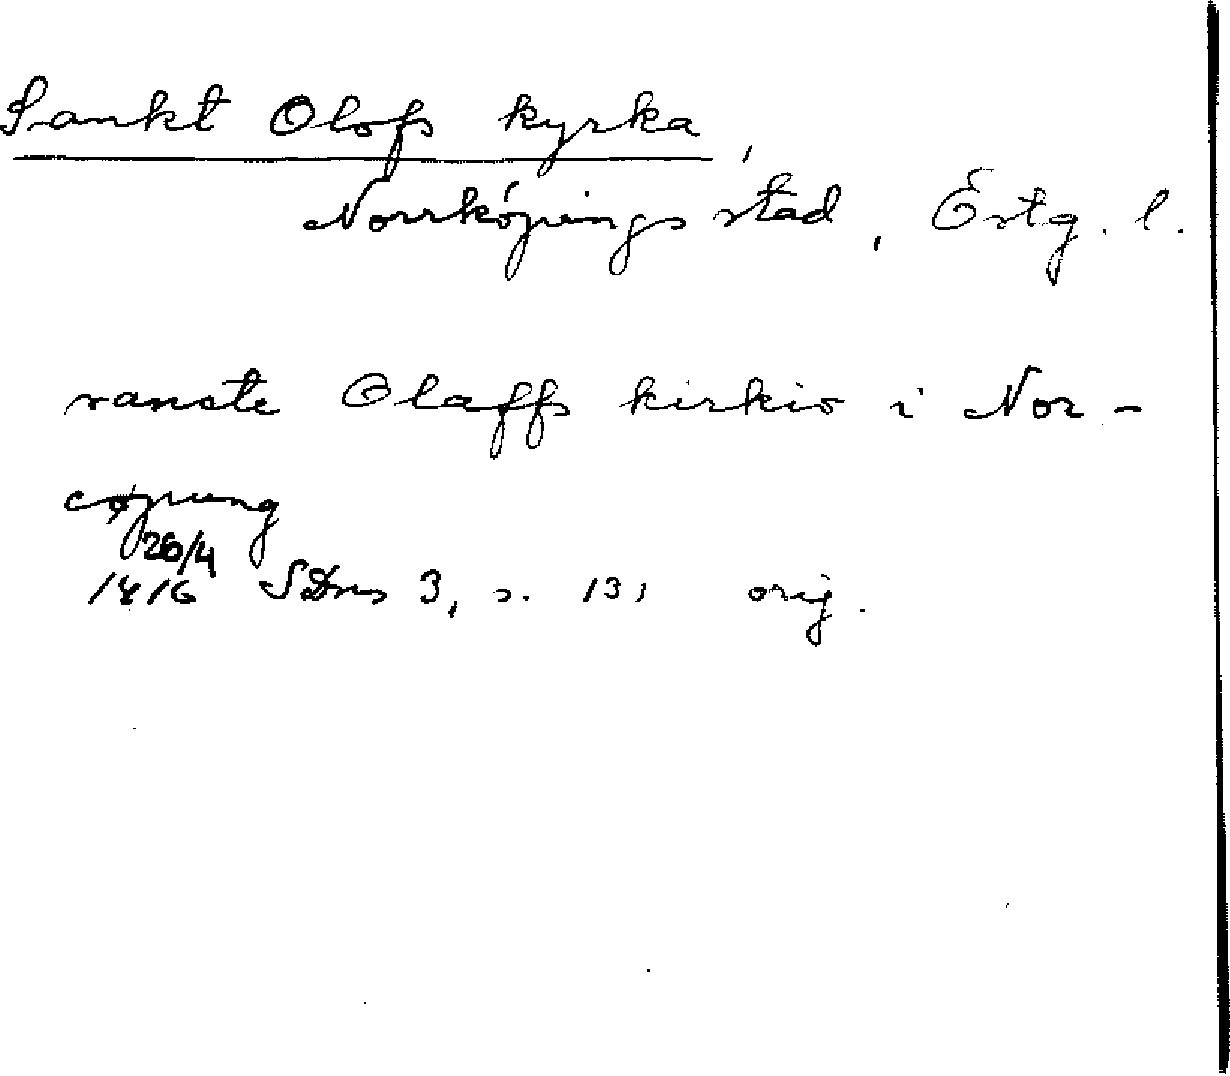 Sankt Olofs kyrka,
Norrköpings stad, Östg. l.
sancte Olaffs kirkio i Nor-
cøpung
26/4
1416 SDns 3, s. 131 orig.